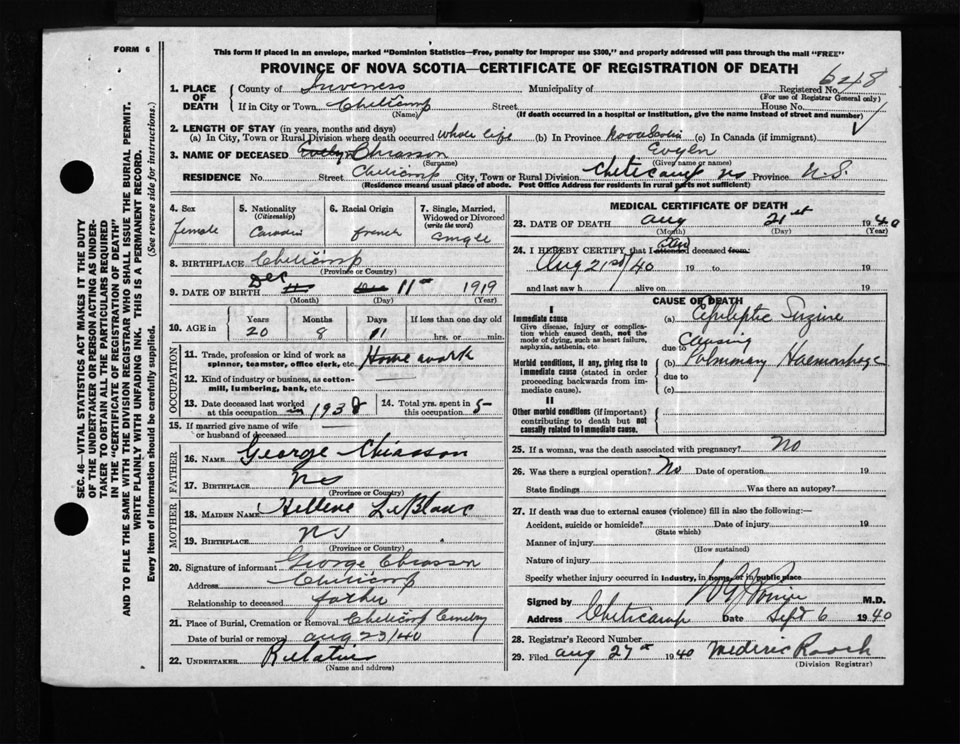 FORM 6
This form if placed in an envelope, marked "Dominion Statistics—Free, penalty for improper use $300," and properly addressed will pass through the mail "FREE"
PROVINCE OF NOVA SCOTIA—CERTIFICATE OF REGISTRATION OF DEATH
6248
1. PLACE OF DEATH
County of Inverness Municipality of Registered No.
(For use of Registrar General only)
If in City or Town Cheticamp Street House No.
(Name) (If death occurred in a hospital or institution, give the name instead of street and number)
2. LENGTH OF STAY (in years, months and days)
(a) In City, Town or Rural Division where death occurred whole life (b) In Province Nova Scotia (c) In Canada (if immigrant)
3. NAME OF DECEASED Evelyn Chiasson Evyln
(Surname) (Given name or names)
RESIDENCE No. Street Cheticamp City, Town or Rural Division Cheticamp NS Province N.S.
(Residence means usual place of abode. Post Office Address for residents in rural parts not sufficient)
4. Sex female
5. Nationality (Citizenship)
6. Racial Origin french
7. Single, Married, Widowed or Divorced (write the word) single
8. BIRTHPLACE Cheticamp
(Province or Country)
9. DATE OF BIRTH Dec 11th 1919
(Month) (Day) (Year)
10. AGE in Years Months Days If less than one day old
20 8 11 hrs. or min.
OCCUPATION
11. Trade, profession or kind of work as spinner, teamster, office clerk, etc. House work
12. Kind of industry or business, as cotton-mill, lumbering, bank, etc.
13. Date deceased last worked at this occupation in 1938
14. Total yrs. spent in this occupation 5
15. If married give name of wife or husband of deceased
FATHER
16. NAME George Chiasson
17. BIRTHPLACE NS
(Province or Country)
MOTHER
18. MAIDEN NAME Hellene LeBlanc
19. BIRTHPLACE NS
(Province or Country)
20. Signature of informant George Chiasson
Address Cheticamp
Relationship to deceased father
21. Place of Burial, Cremation or Removal Cheticamp Cemetery
Date of burial or removal aug 23/40
22. UNDERTAKER Relatives
(Name and address)
MEDICAL CERTIFICATE OF DEATH
23. DATE OF DEATH aug 21st 1940
(Month) (Day) (Year)
24. I HEREBY CERTIFY that I attended deceased from:
Aug 21st/40 19 to 19
and last saw h alive on 19
CAUSE OF DEATH
I
Immediate cause
Give disease, injury or complication which caused death, not the mode of dying, such as heart failure, asphyxia, asthenia, etc.
(a) Epileptic Seizure
due to causing
Morbid conditions, if any, giving rise to immediate cause (stated in order proceeding backwards from immediate cause).
(b) Pulmonary Haemorhage
due to
(c)
II
Other morbid conditions (if important) contributing to death but not causally related to immediate cause.
25. If a woman, was the death associated with pregnancy? No
26. Was there a surgical operation? No Date of operation 19
State findings Was there an autopsy?
27. If death was due to external causes (violence) fill in also the following:—
Accident, suicide or homicide? Date of injury 19
(State which)
Manner of injury
(How sustained)
Nature of injury
Specify whether injury occurred in industry, in home, or in public place
Signed by M.D.
Address Cheticamp Date Sept 6 1940
28. Registrar's Record Number
29. Filed aug 27th 1940 Mederic Roach
(Division Registrar)
SEC. 46—VITAL STATISTICS ACT MAKES IT THE DUTY
OF THE UNDERTAKER OR PERSON ACTING AS UNDER-
TAKER TO OBTAIN ALL THE PARTICULARS REQUIRED
IN THE "CERTIFICATE OF REGISTRATION OF DEATH"
AND TO FILE THE SAME WITH THE DIVISION REGISTRAR WHO SHALL ISSUE THE BURIAL PERMIT.
WRITE PLAINLY WITH UNFADING INK. THIS IS A PERMANENT RECORD.
Every item of information should be carefully supplied. (See reverse side for instructions.)